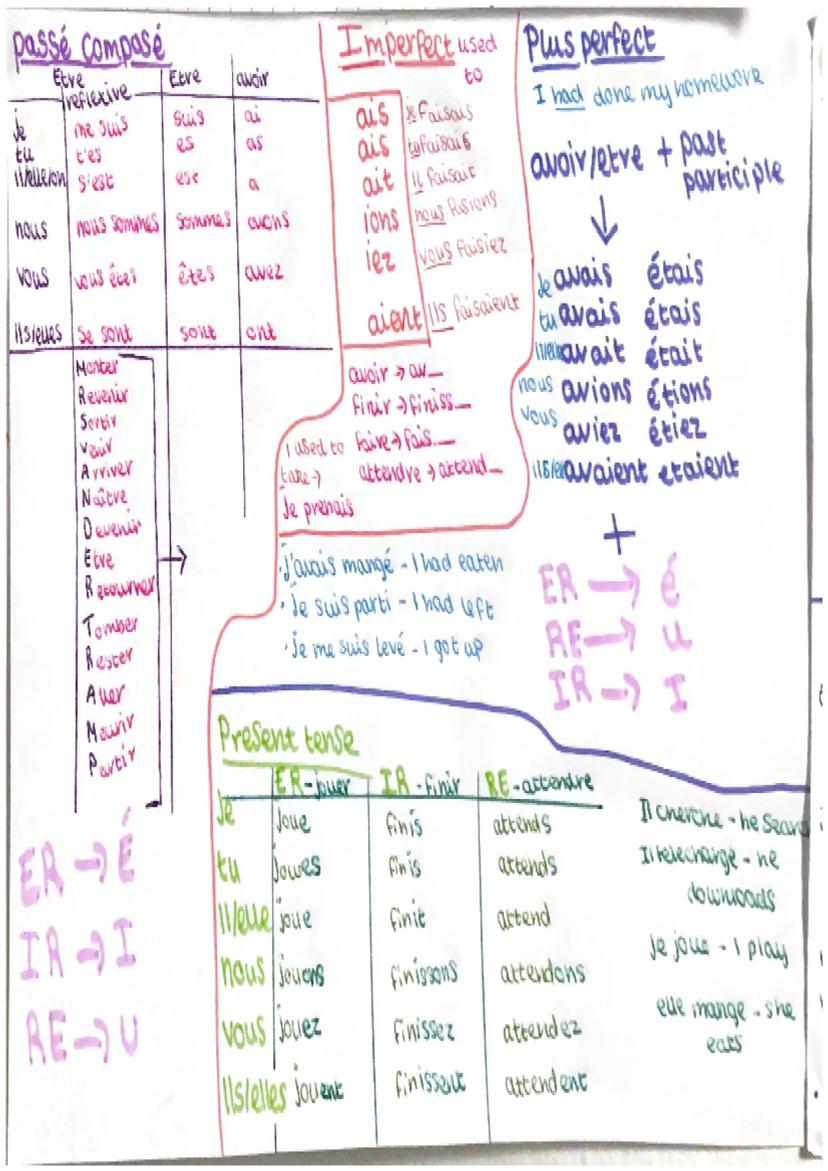 passé composé
Etre reflexive Etre avoir
je me suis suis ai
tu t'es es as
il/elle/on s'est est a
nous nous sommes sommes avons
vous vous êtes êtes avez
ils/elles se sont sont ont
Monter
Revenir
Sortir
Venir
Arriver
Naître
Devenir
Etre
Retourner
Tomber
Rester
Aller
Mourir
Partir
ER → É
IR → I
RE → U
Imperfect used to
ais je faisais
ais tu faisais
ait il faisait
ions nous faisions
iez vous faisiez
aient ils faisaient
avoir → av_
finir → finiss_
faire → fais_
attendre → attend_
I used to
take →
Je prenais
Plus perfect
I had done my homework
avoir/etre + past participle
↓
Je avais étais
tu avais étais
il/elle avait était
nous avions étions
vous aviez étiez
ils/elles avaient etaient
+
ER → é
RE → u
IR → I
· J'avais mangé - I had eaten
· Je suis parti - I had left
· Je me suis levé - I got up
Present tense
ER-jouer IR-finir RE-attendre
Je joue finis attends
tu joues finis attends
Il/elle joue finit attend
nous jouons finissons attendons
vous jouez finissez attendez
Ils/elles jouent finissent attendent
Il cherche - he searc
Il telecharge - he
downloads
Je joue - I play
elle mange - she
eats